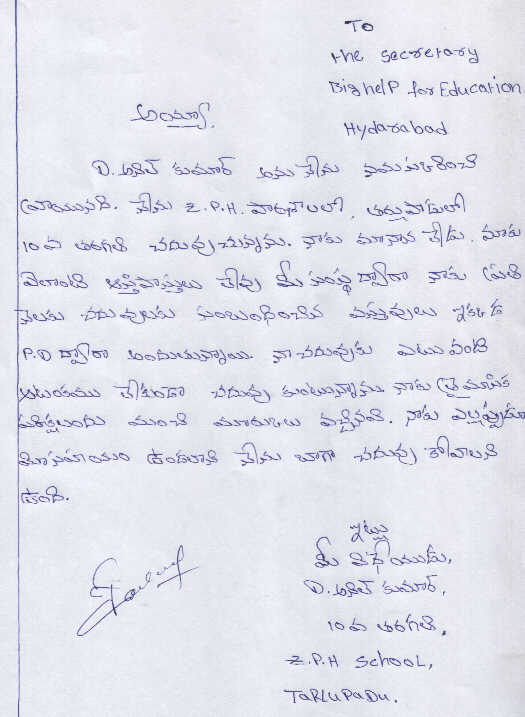 To
the secretary
Bighelp for Education
Hydarabad
అయ్యా,
D. అనిల్ కుమార్ అను నేను నమస్కరించి
వ్రాయునది. నేను Z.P.H. పాఠశాలలో, తర్లుపాడులో
10వ తరగతి చదువుచున్నాను. నాకు మానాన లేడు. మాకు
ఎలాంటి ఆస్తిపాస్తులు లేవు మీ సంస్థ ద్వారా నాకు ప్రతి
నెలకు చదువులకు సంబంధించిన వస్తువులు ఇక్కడ
P.D ద్వారా అందుతున్నాయి. నా చదువుకు ఎటువంటి
ఆటంకము లేకుండా చదువు కుంటున్నాను. నాకు త్రైమాసిక
పరిక్షలందు మంచి మార్కులు వచ్చినవి. నాకు ఎల్లప్పుడూ
మీ సహాయం ఉండాలని నేను బాగా చదువు కోవాలని
ఉంది.
ఇట్లు
మీ విధేయుడు,
D. అనిల్ కుమార్,
10వ తరగతి,
Z.P.H SCHOOL,
TARLUPADU.